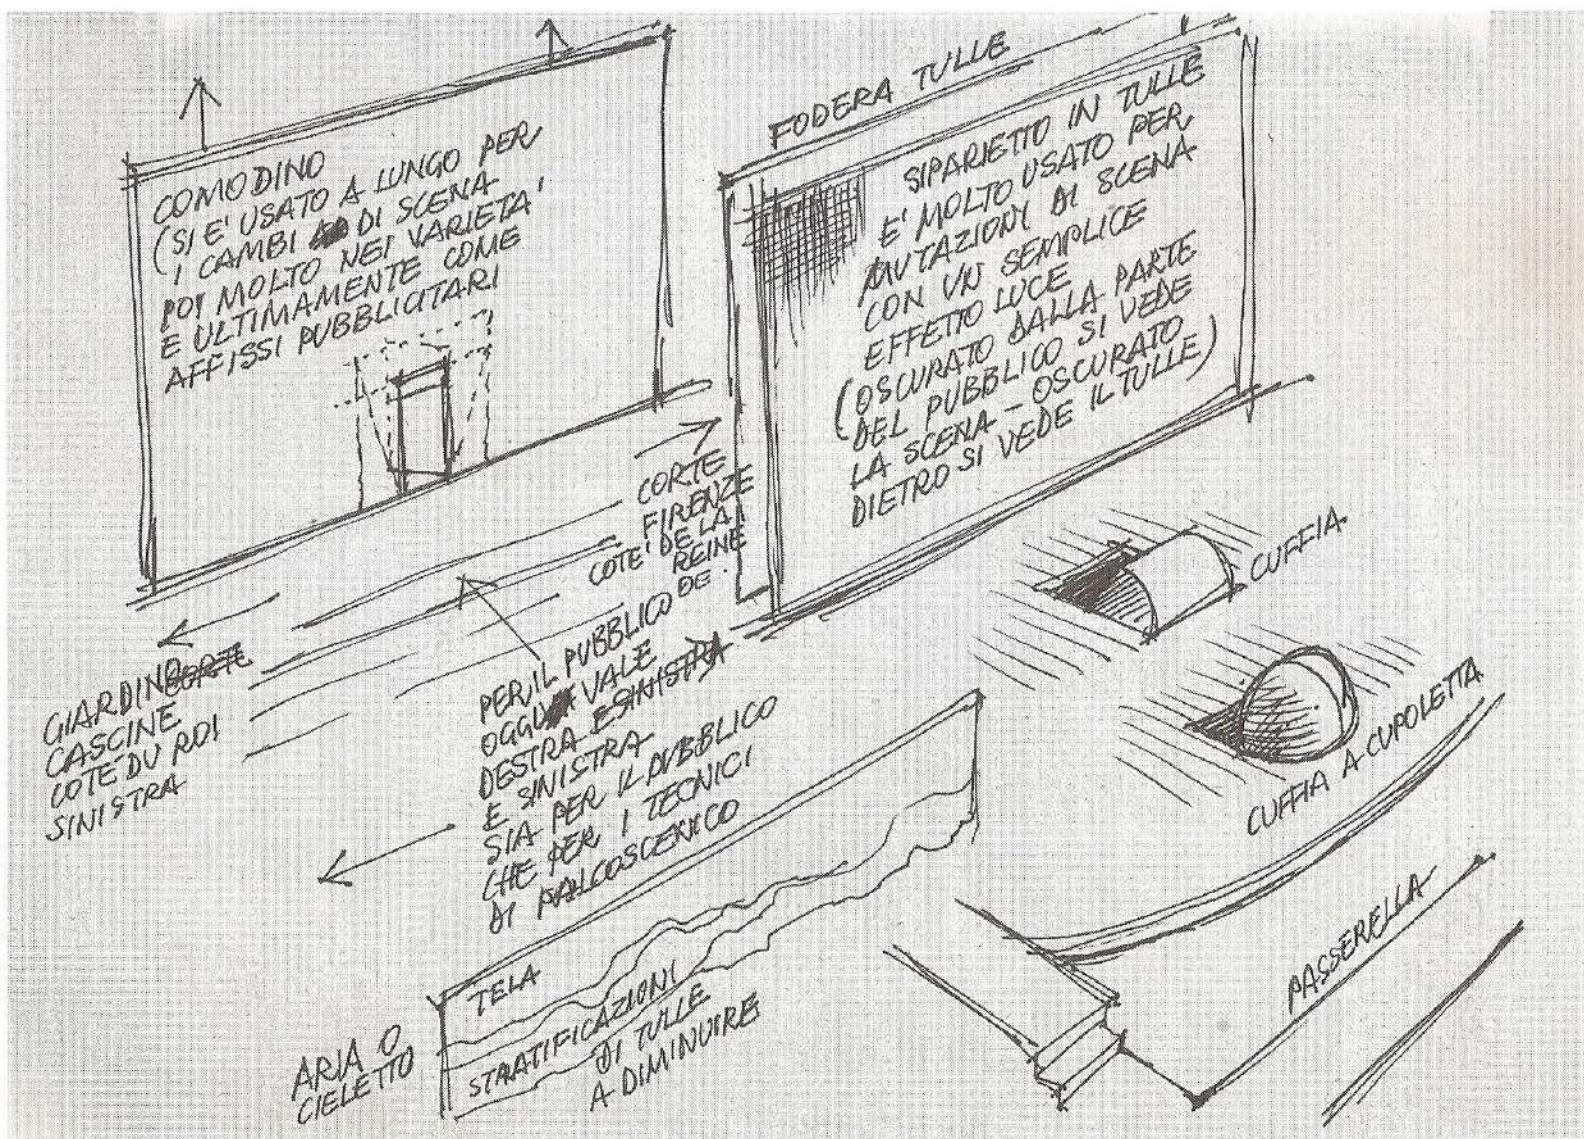 COMODINO
(SI E' USATO A LUNGO PER
I CAMBI DI SCENA
POI MOLTO NEI VARIETA'
E ULTIMAMENTE COME
AFFISSI PUBBLICITARI
FODERA TULLE
SIPARIETTO IN TULLE
E' MOLTO USATO PER
MUTAZIONI DI SCENA
CON UN SEMPLICE
EFFETTO LUCE
(OSCURATO DALLA PARTE
DEL PUBBLICO SI VEDE
LA SCENA - OSCURATO
DIETRO SI VEDE IL TULLE)
CORTE
FIRENZE
COTE' DE LA
REINE
DE.
GIARDINO CORTE
CASCINE
COTE' DU ROI
SINISTRA
PER IL PUBBLICO
OGGI VALE
DESTRA E SINISTRA
E SINISTRA
SIA PER IL PUBBLICO
CHE PER I TECNICI
DI PALCOSCENICO
CUFFIA
CUFFIA A CUPOLETTA
PASSERELLA
ARIA O
CIELETTO
TELA
STRATIFICAZIONI
DI TULLE
A DIMINUIRE